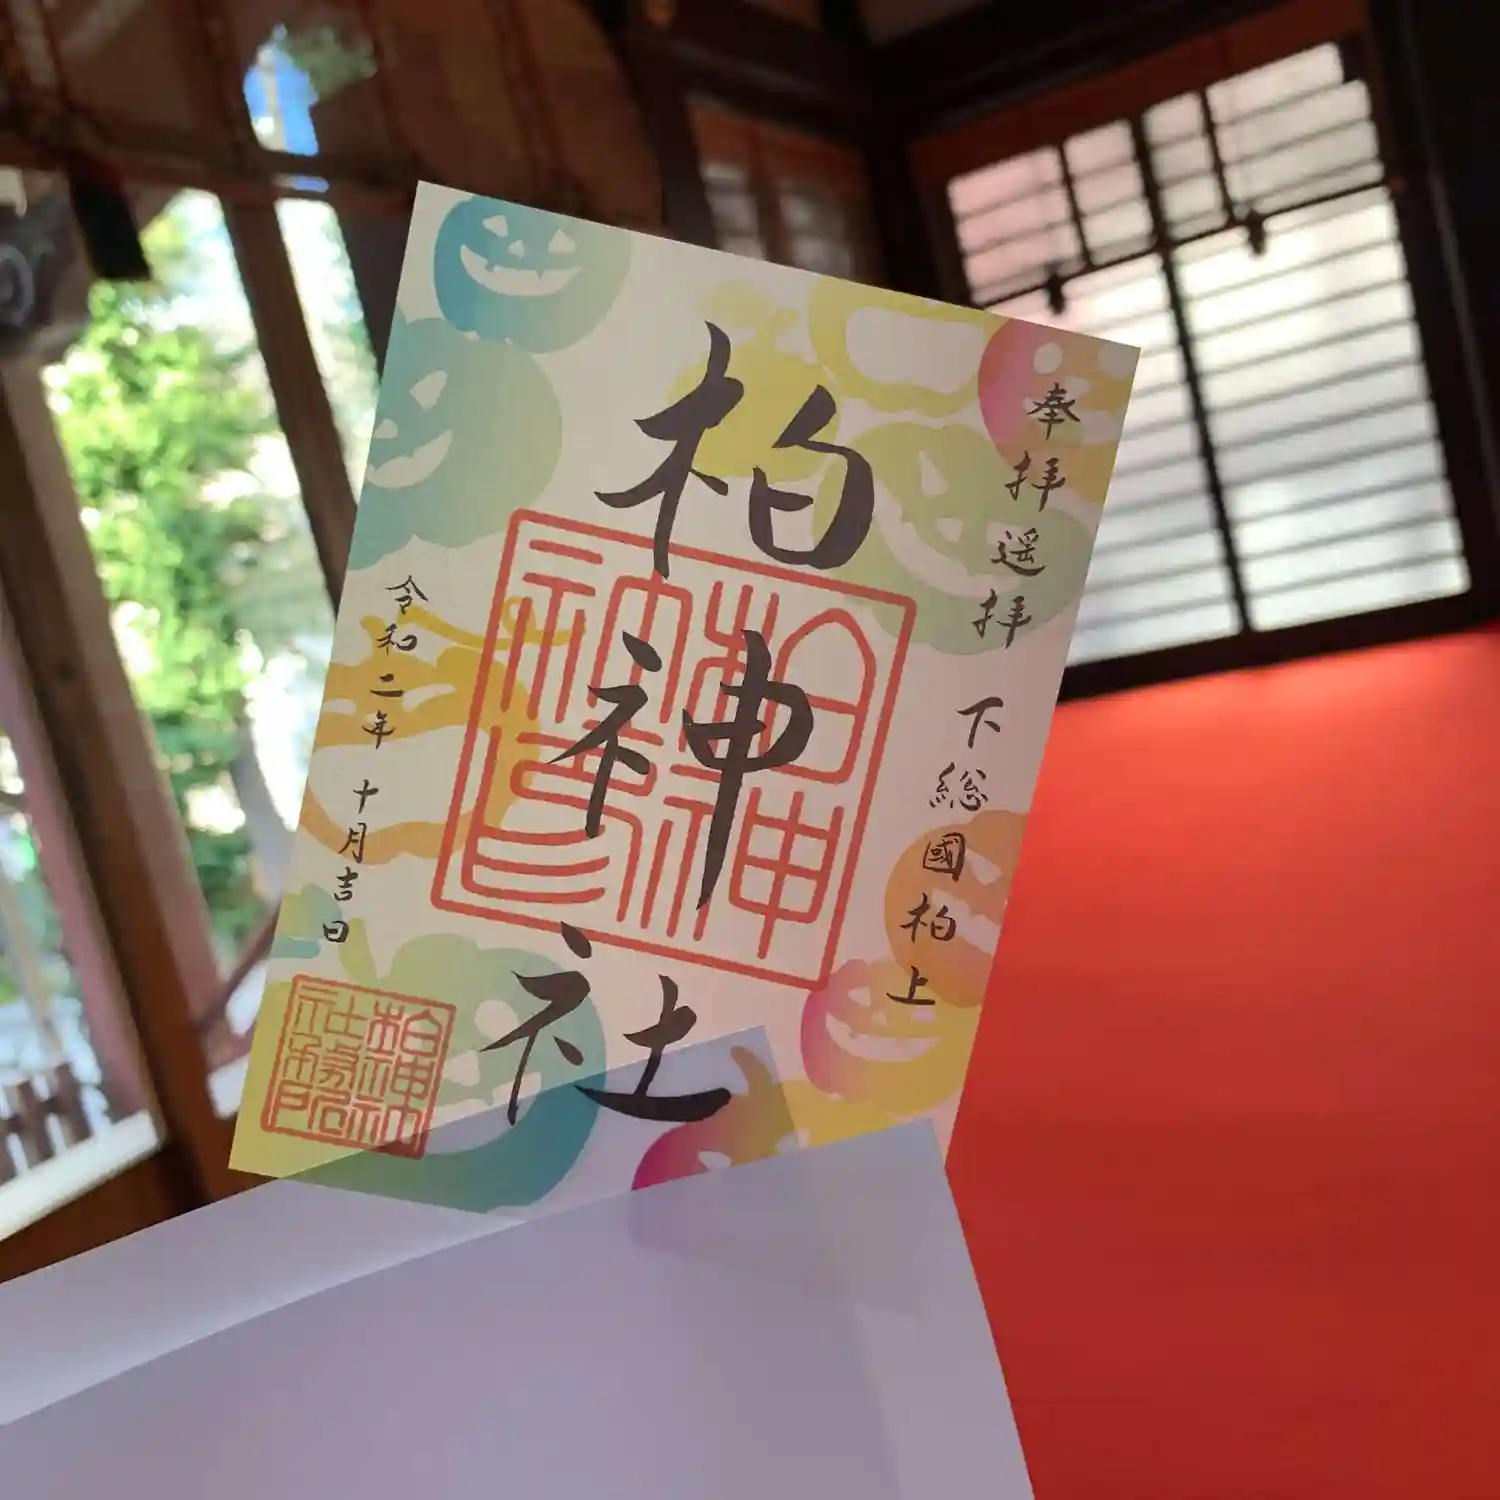 奉拝遥拝 下総國柏上
柏神社
柏神神印
令和二年 十月吉日
柏神社務所